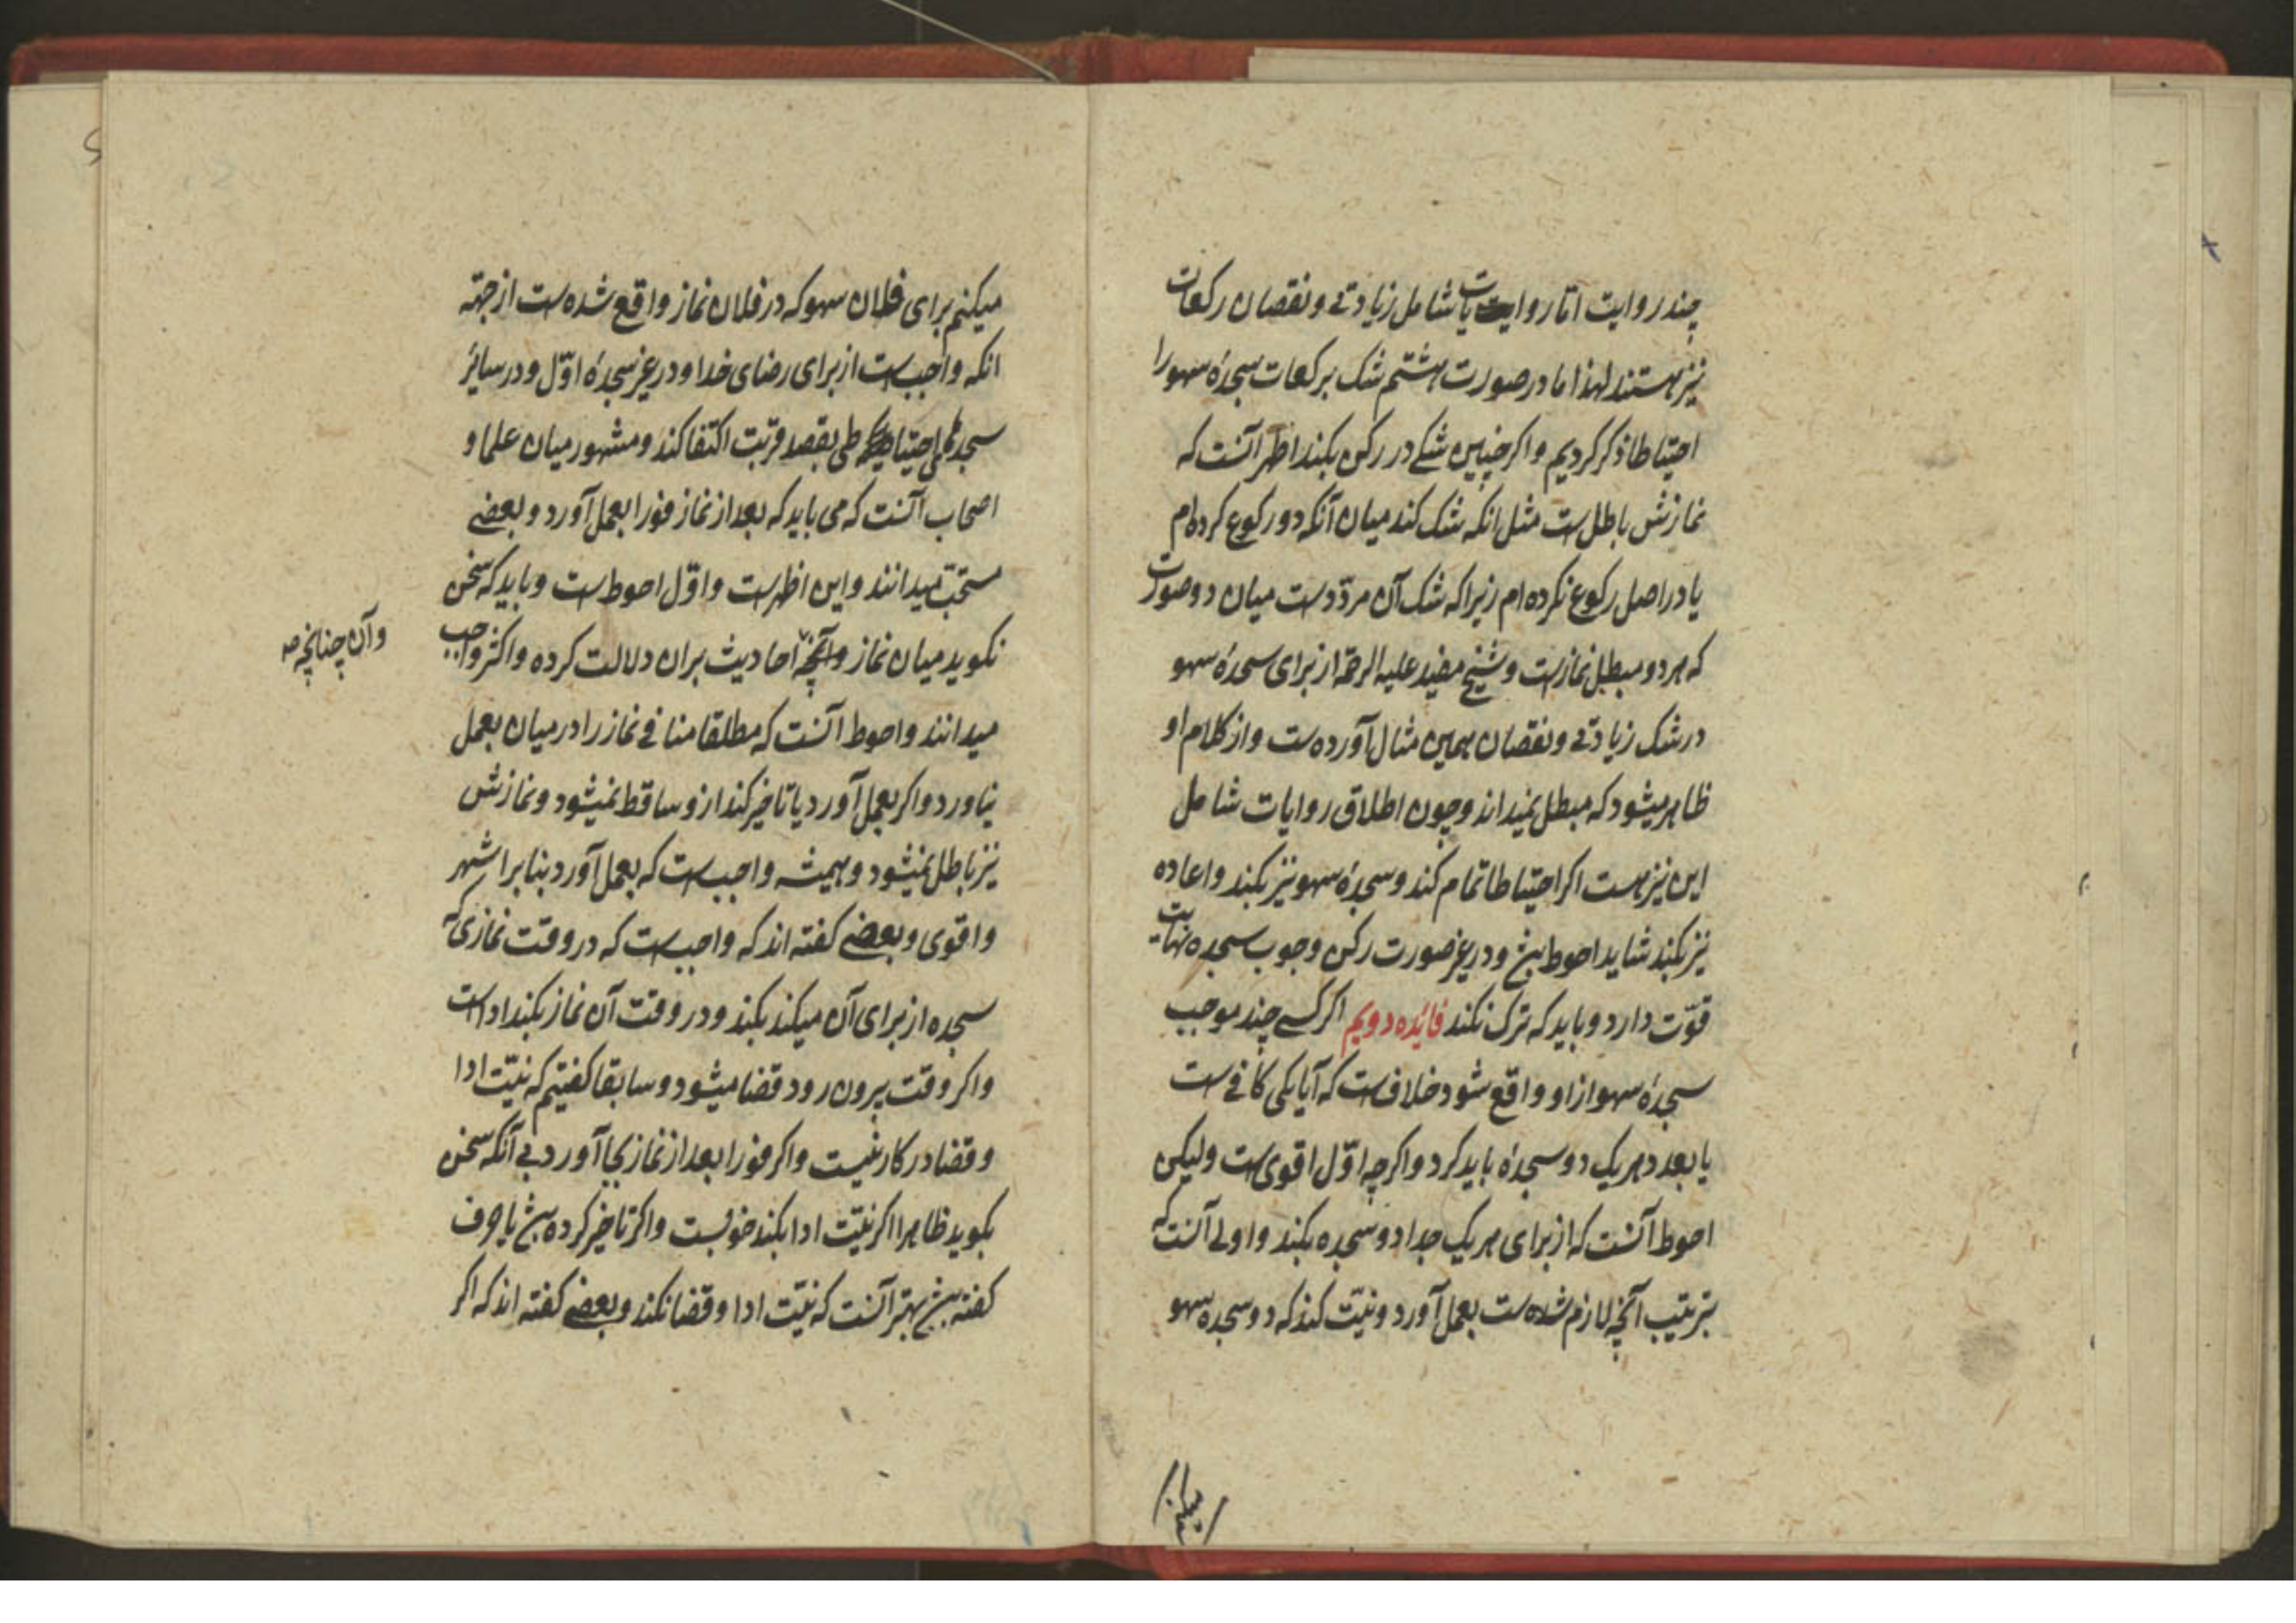 چند روایت اما روایات شامل زیادتی و نقصان رکعات
نیز هستند لهذا ما در صورت هشتم شک برکعات سجدۀ سهو را
احتیاطا ذکر کردیم و اکر چنین شکی در رکن بکند اظهر آنست که
نمازش باطل است مثل انکه شک کند میان آنکه دو رکوع کرده ام
یا در اصل رکوع نکرده ام زیرا که شک آن مردّدست میان دو صورت
که هر دو مبطل نمازست و شیخ مفید علیه الرحمة از برای سجدۀ سهو
در شک زیادتی و نقصان همین مثال آورده است و از کلام او
ظاهر میشود که مبطل نمیداند و چون اطلاق روایات شامل
این نیز هست اکر احتیاطا تمام کند و سجدۀ سهو نیز بکند و اعاده
نیز بکند شاید احوط باشد و در غیر صورت رکن وجوب سجده نهایت
قوّت دارد و باید که ترک نکند فائده دویم اکر کسی چند موجب
سجدۀ سهو از او واقع شود خلافست که آیا یکی کافی است
یا بعدد هر یک دو سجدۀ باید کرد و اکرچه اوّل اقوی است ولیکن
احوط آنست که از برای هر یک جدا دو سجده بکند و اولی آنست که
بترتیب آنچه لازم شده است بعمل آورد و نیّت کند که دو سجدۀ سهو
میکنم برای فلان سهو که در فلان نماز واقع شده است از جهة
انکه واجب است از برای رضای خدا و در غیر سجدۀ اوّل و در سایر
سجدهای احتیاطی بقصد قربت اکتفا کند و مشهور میان علما و
اصحاب آنست که می باید که بعد از نماز فورا بعمل آورد و بعضی
مستحبّ میدانند و این اظهرست و اوّل احوط است و باید که سخن
نکوید میان نماز و آنچه احادیث بران دلالت کرده و اکثر واجب
وآن چنانچه صه
میدانند و احوط آنست که مطلقا منافی نماز را در میان بعمل
نیاورد و اکر بعمل آورد یا تاخیر کند ازو ساقط نمیشود و نمازش
نیز باطل نمیشود و همیشه واجب است که بعمل آورد بنابر اشهر
و اقوی و بعضی کفته اند که واجب است که در وقت نمازی که
سجده از برای آن میکند بکند و در وقت آن نماز بکند اداست
و اکر وقت بیرون رود قضا میشود و سابقا کفتیم که نیّت ادا
و قضا در کار نیست و اکر فورا بعد از نماز بجا آورد بی آنکه سخن
بکوید ظاهرا اکر نیّت ادا بکند خوبست و اکر تاخیر کرده باشد یا حرف
کفته باشد بهتر آنست که نیّت ادا و قضا نکند و بعضی کفته اند که اکر